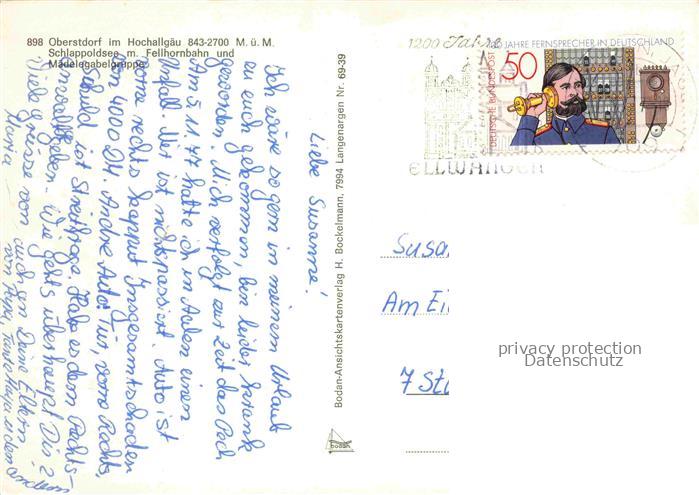 898 Oberstdorf im Hochallgäu 843-2700 M. ü. M.
Schlappoldsee m. Fellhornbahn und
Mädelegabelgruppe
Liebe Susanne!
Ich wäre so gern in meinem Urlaub
zu euch gekommen, bin leider krank
geworden. Mich verfolgt zur Zeit das Pech
Am 5.11.77 hatte ich in Aalen einen
Unfall. Mir ist nichts passiert. Auto ist
vorne rechts kaputt Insgesamtschaden
4000 DM. Andre Auto: Tür, vorne Rechts,
Schuld ist Streitfrage. Habe es dem Rechts-
anwalt geben. Wie gehts überhaupt Dir?
Viele grüsse von auch an Deine Eltern
Maria
von Papa, Tante
Bodan-Ansichtskartenverlag H. Bockelmann, 7994 Langenargen Nr. 69-39
bodan
1200 Jahre
ELLWANGEN
100 JAHRE FERNSPRECHER IN DEUTSCHLAND
50
DEUTSCHE BUNDESPOST
Susa
Am Ei
7 Stu
privacy protection
Datenschutz